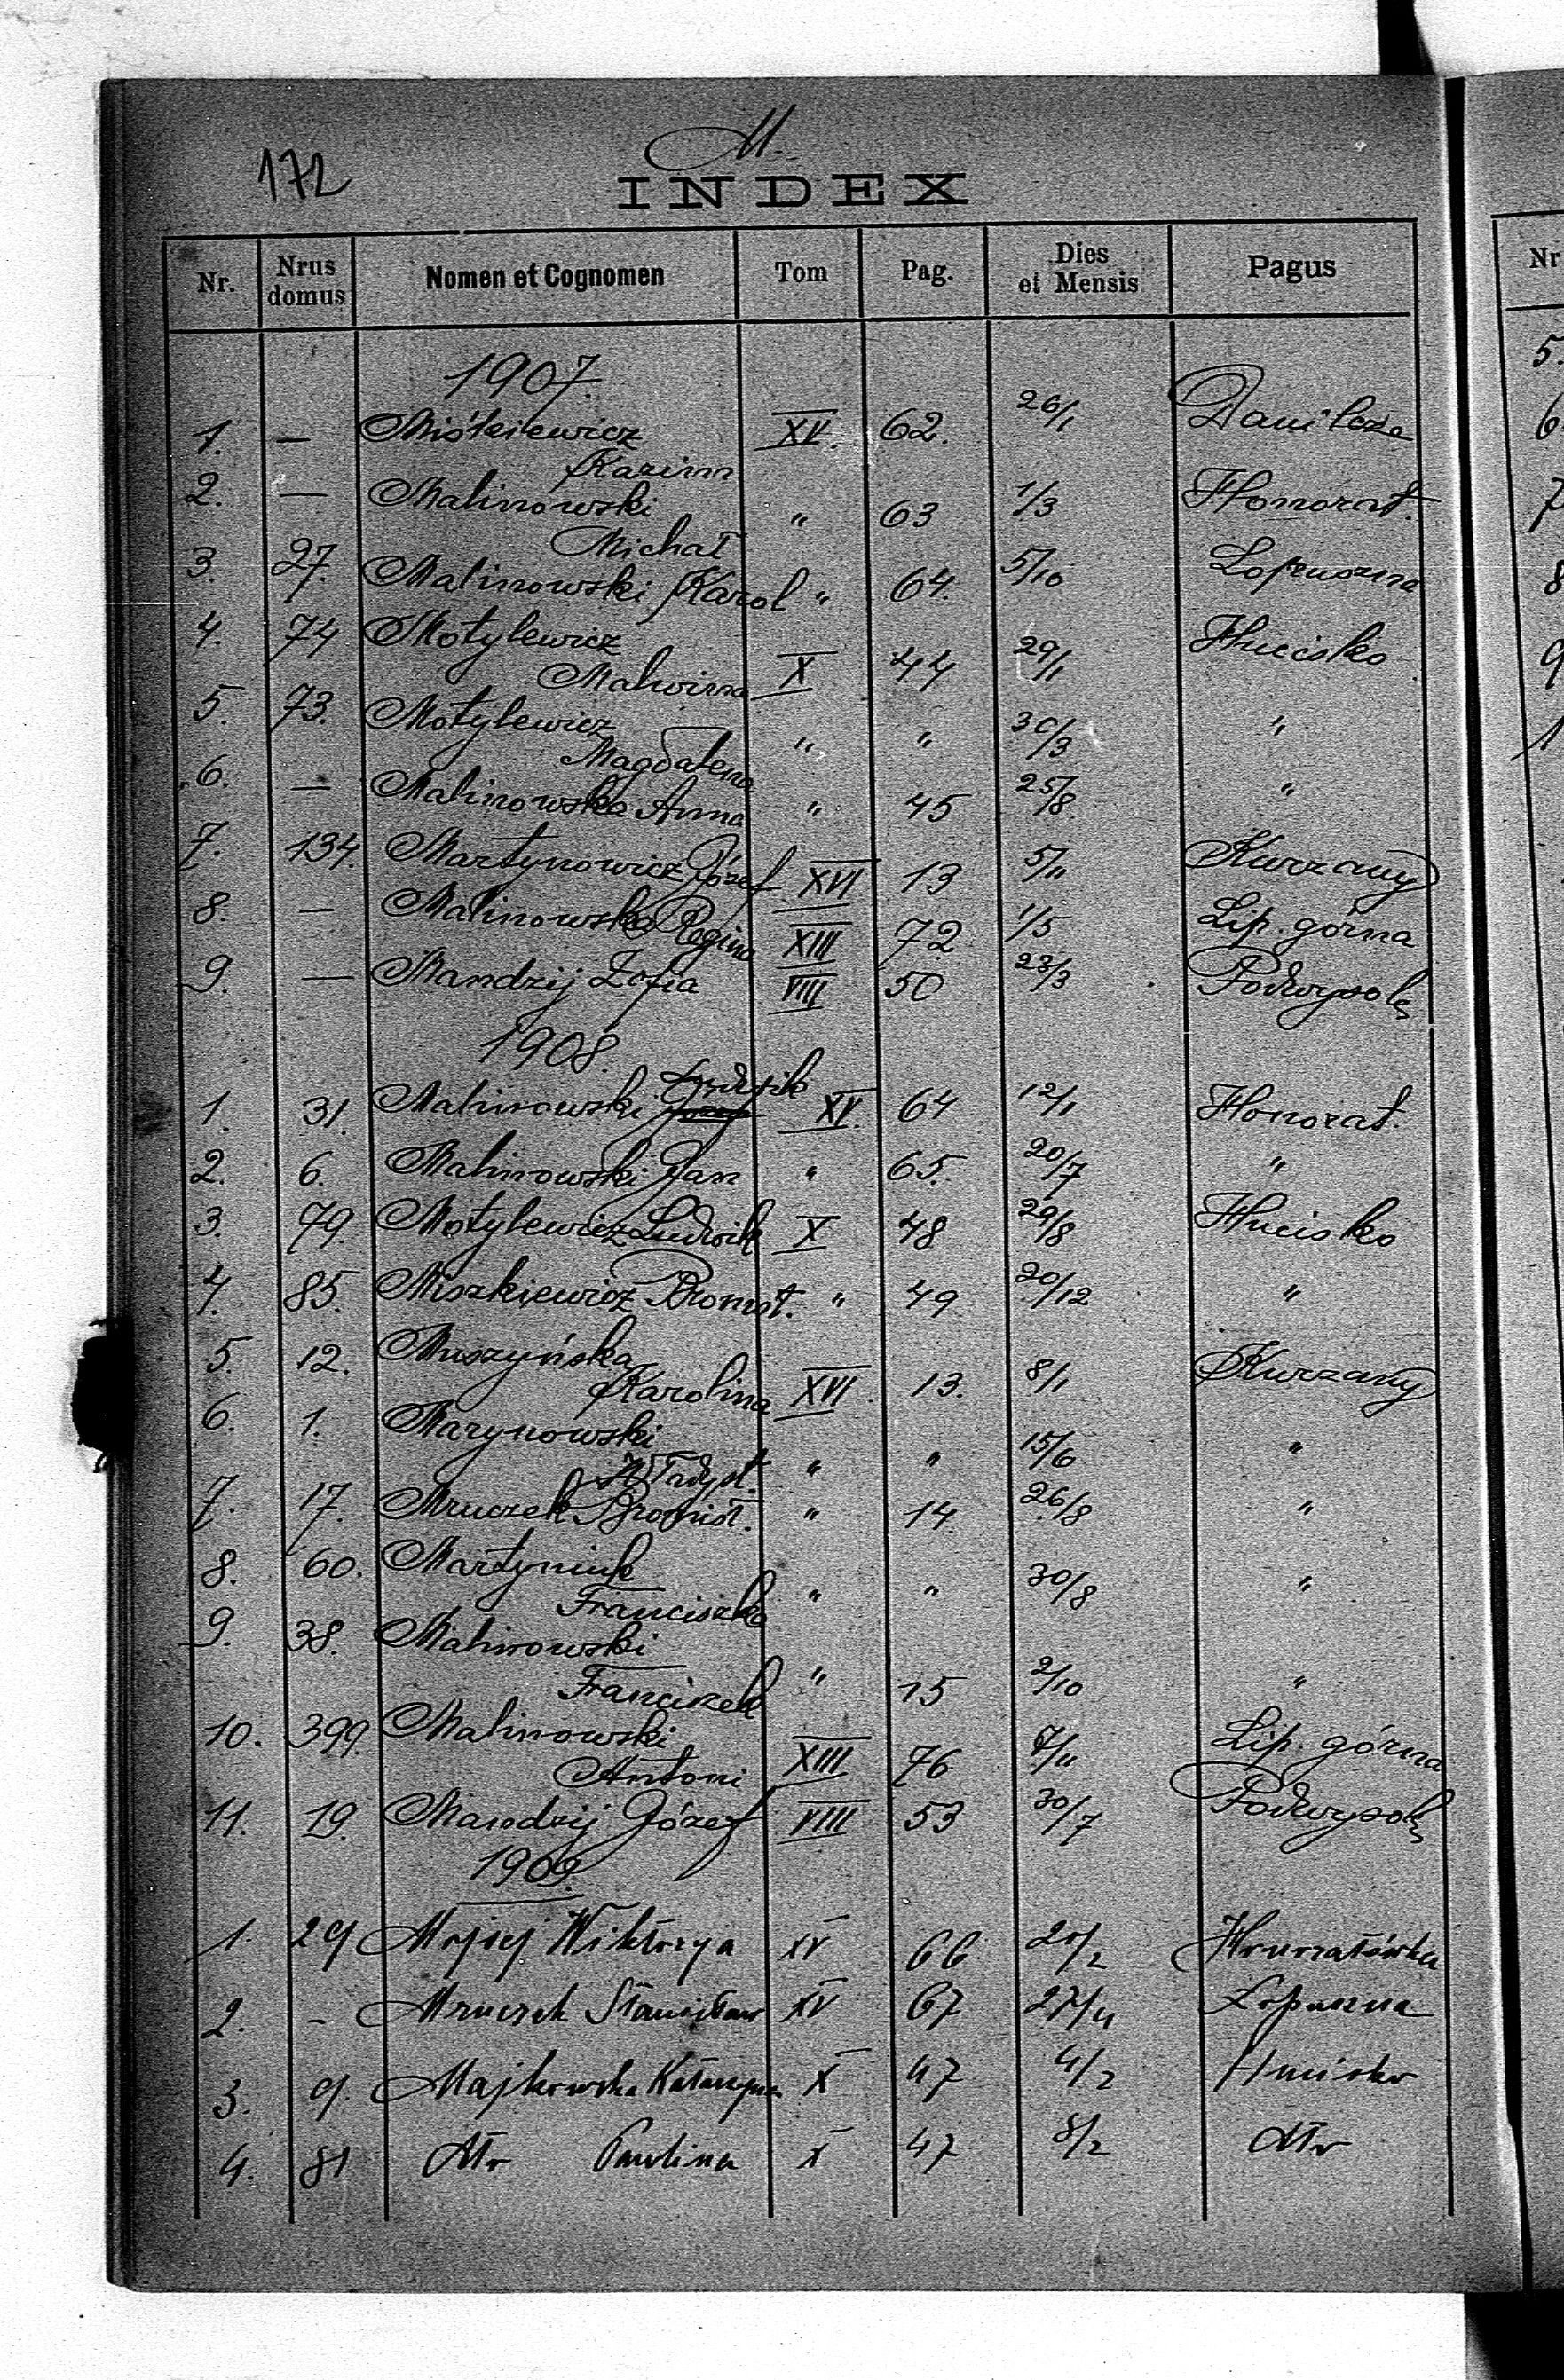 172
M.
INDEX
Nr. Nrus domus Nomen et Cognomen Tom Pag. Dies et Mensis Pagus
1907.
1. — Miśkiewicz XV. 62. 26/1 Danilcze
Kazim
2. — Malinowski " 63 1/3 Honorat.
Michał
3. 27. Malinowski Karol " 64. 5/10 Lopuszna
4. 74 Motylewicz X 44 29/1 Hucisko
Malwina
5. 73. Motylewicz " " 30/3 "
Magdalena
6. — Malinowska Anna " 45 25/8. "
7. 134. Martynowicz Józef XVI 13 5/11 Kurzany
8. — Malinowska Regina XIII 72 1/5 Lip. górna
9. — Mandzij Zofia VIII 50 23/3 Podwysoke
1908.
1. 31. Malinowski Ludwik XV. 64 12/1 Honorat.
2. 6. Malinowski Jan " 65. 20/7 "
3. 79. Motylewicz Ludwik X 48 29/8 Hucisko
4. 85. Miszkiewicz Bronisł. " 49 20/12 "
5. 12. Muszyńska XVI 13. 8/1 Kurzany
Karolina
6. 1. Marynowski " " 15/6 "
Władysł.
7. 17. Mruczek Bronisł. " 14. 26/8 "
8. 60. Martyniuk " " 30/8 "
Franciszka
9. 38. Malinowski " 15 2/10 "
Franciszek
10. 399. Malinowski XIII 76 7/11 Lip. górna
Antoni
11. 19. Mandzij Józef VIII 53 30/7 Podwysok
1909.
1. 29 Mojsej Wiktorya XV 66 20/2 Honoratówka
2. - Mruczek Stanisław XV 67 27/4 Lopuszna
3. 9. Majkowska Katarzyna X 47 4/2 Hucisko
4. 81 dtto Paulina X 47 8/2 dtto
Nr
5.
6
7
8
9
1